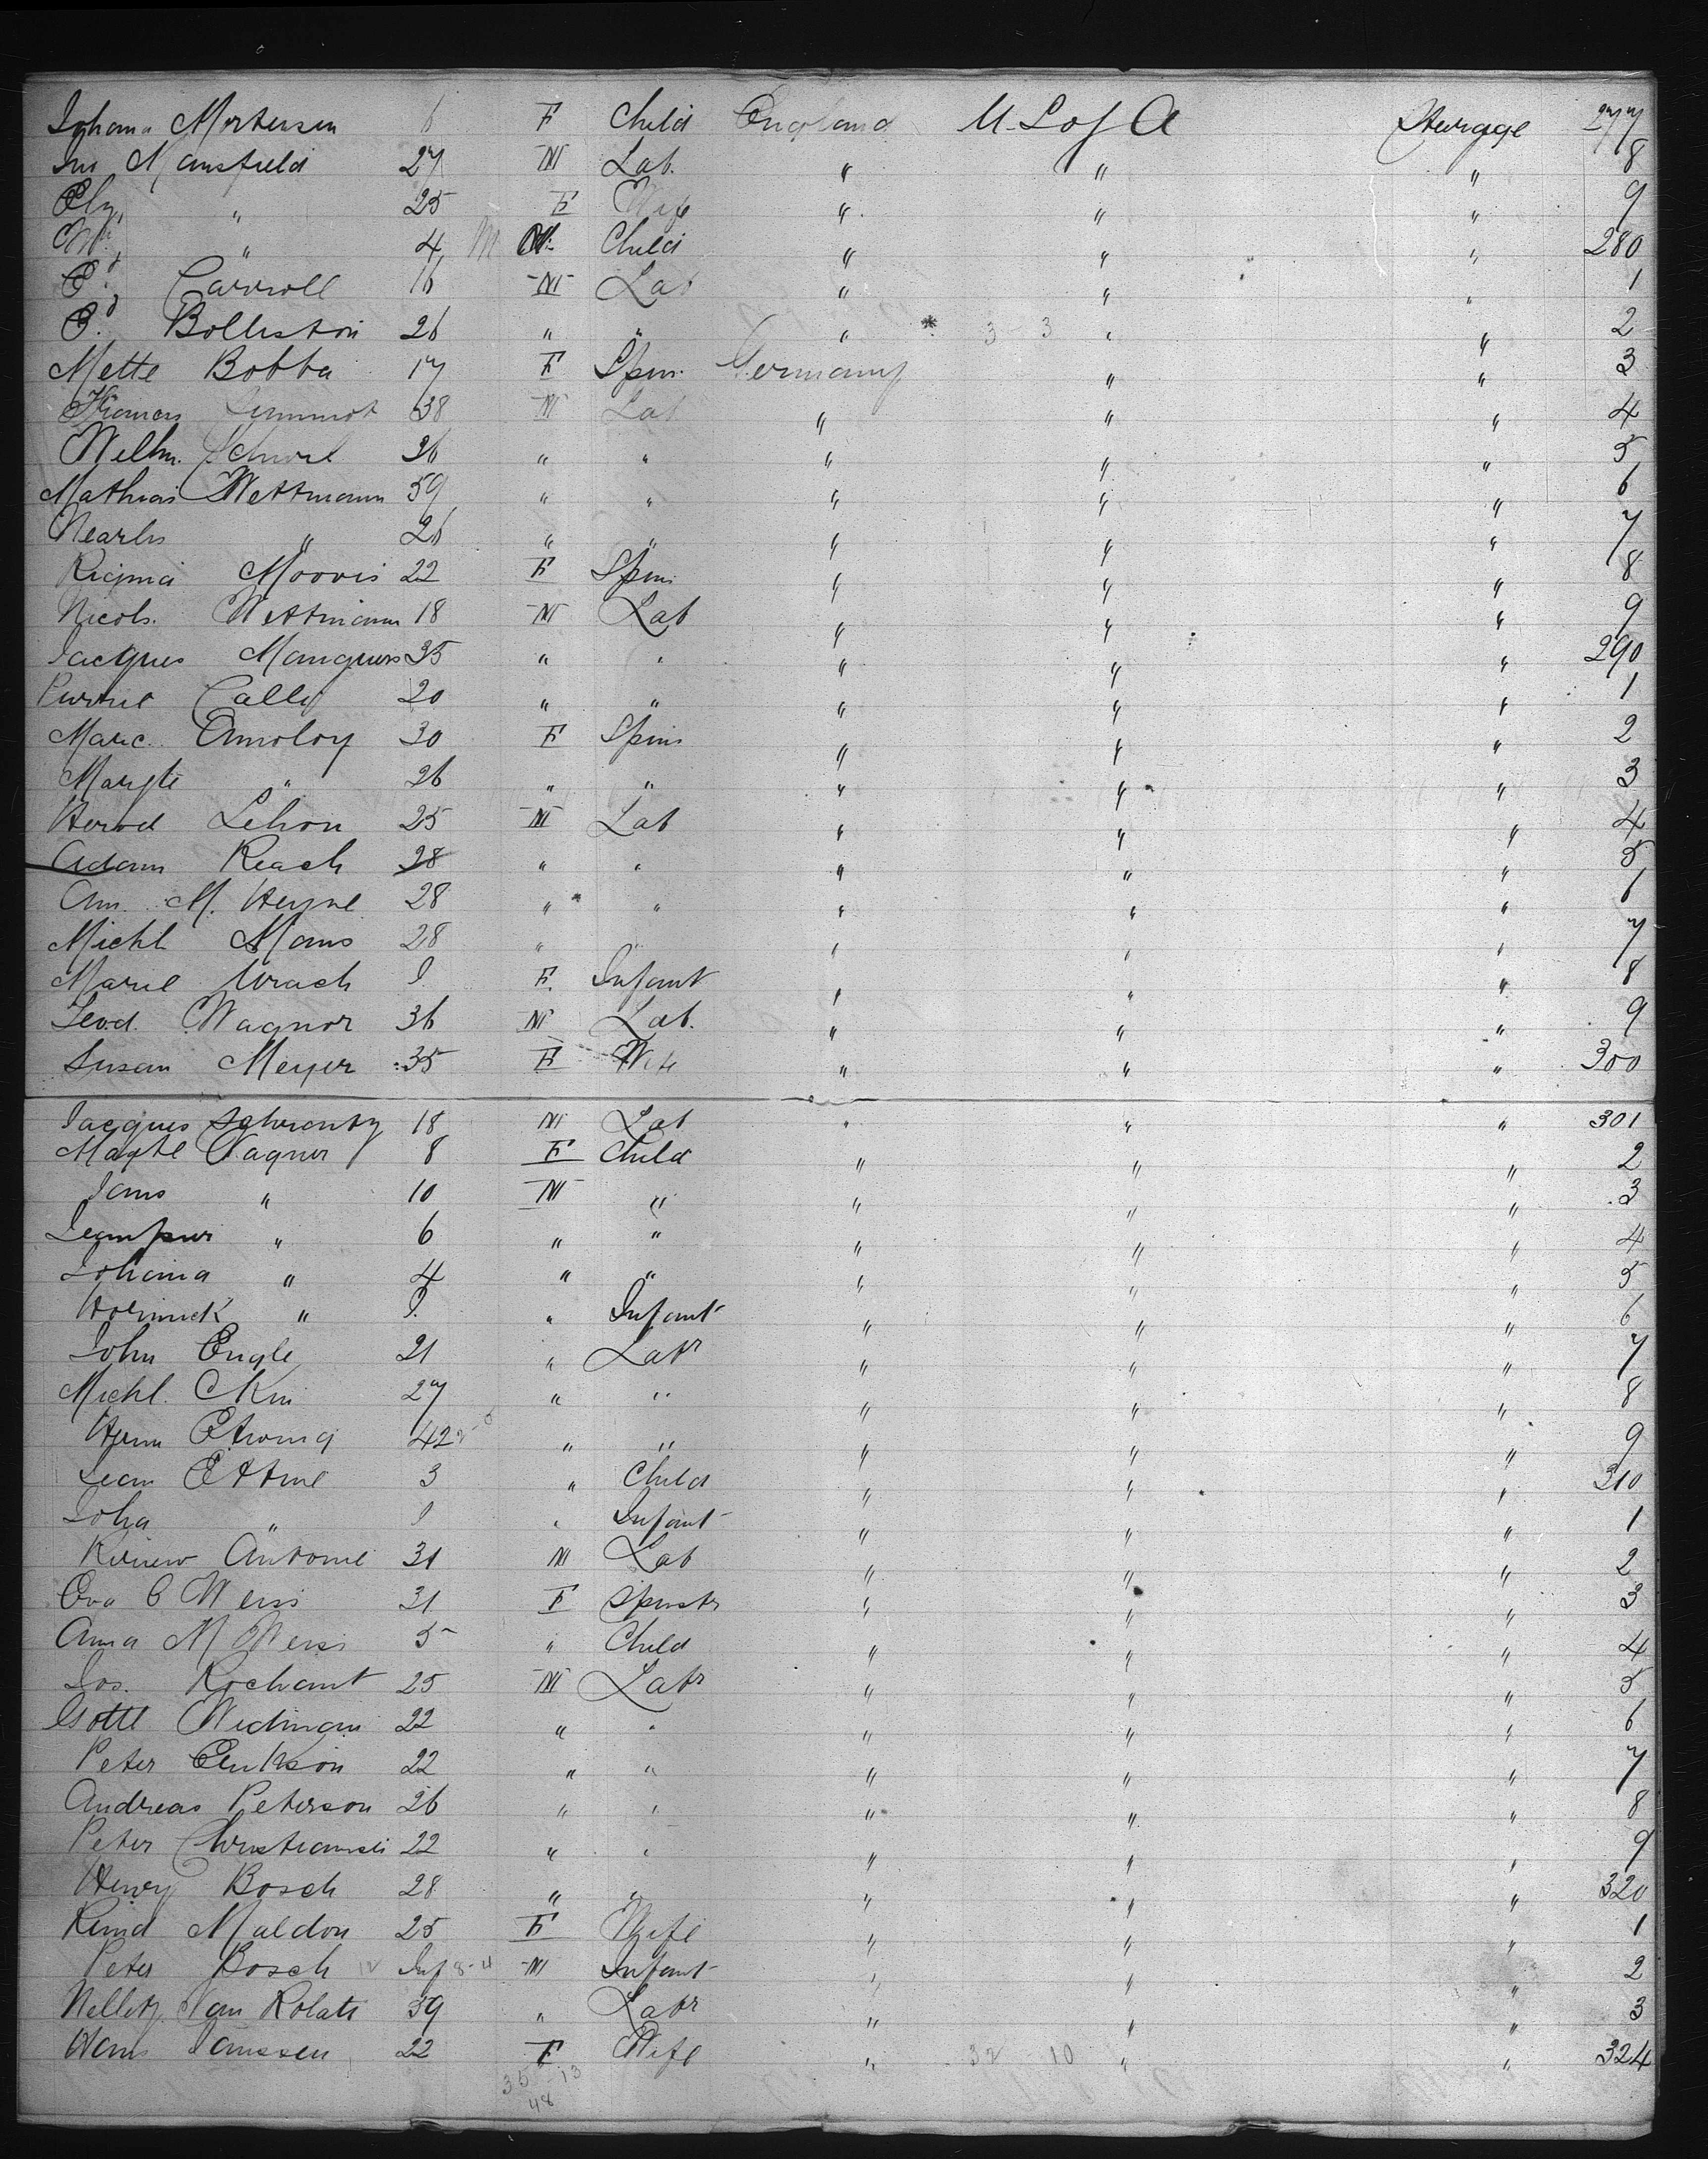 Johana Mortensen 6 F Child England U.S of A Sterage 277
Jno Mansfield 27 M Lab. " " " 8
Elz, " 25 F Wife " " " 9
Wm, " 4 M Child " " " 280
Ed. Carroll 16 M Lab " " " 1
Ed. Bolliston 26 " " " 3-3 " " 2
Mette Bobba 17 F Spin. Germany " " 3
Thomas 38 M Lab " " " 4
Welhm. 26 " " " " " 5
Mathias Wettmann 59 " " " " " 6
" 26 " " " " " 7
Moovis 22 F Spin. " " " 8
Nicols. Wettmann 18 M Lab " " " 9
Jacques 35 " " " " " 290
Cally 20 " " " " " 1
Marc. Amoloy 30 F Spins " " " 2
Margte " 26 " " " " " 3
Lehon 25 M Lab " " " 4
Adam Reach 28 " " " " " 5
Ann. M. Heyne 28 " " " " " 6
Michl Mans 28 " " " " " 7
Marie Urach F. Infant " " " 8
Wagnor 36 M Lab. " " " 9
Susan Meyer 35 F Wife " " " 300
Jacques 18 M Lab " " " 301
Magte Wagner 8 F Child " " " 2
Jans " 10 M " " " " 3
" 6 " " " " " 4
Johana " 4 " " " " " 5
" " Infant " " " 6
John Engle 21 " Labr " " " 7
Michl. 27 " " " " " 8
42 " " " " " 9
Jean Ettine 3 " Child " " " 310
Joha " " Infant " " " 1
Antome 31 M Lab " " " 2
Eva C Weiss 31 F Spinstr " " " 3
Anna M Weiss 5 " Child " " " 4
Jos. Rochant 25 M Labr " " " 5
Gottl Widmann 22 " " " " " 6
Peter Erikson 22 " " " " " 7
Andreas Peterson 26 " " " " " 8
Peter Christiansen 22 " " " " " 9
Henry Bosch 28 " " " " " 320
Maldon 25 F Wife " " " 1
Peter Bosch Inf 8-4 M Infant " " " 2
Van Rolats 39 " Labr " " " 3
Hans Janssen 22 F Wife " 32 10 " " 324
35-13
48